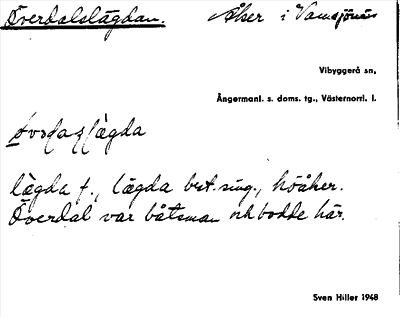 Överdalslägdan. Åker i Vamsjönäs
Vibyggerå sn,
Ångermanl. s. doms. tg., Västernorrl. l.
lägda f., lägda best. sing., höåker.
Överdal var båtsman och bodde här.
Sven Hiller 1948